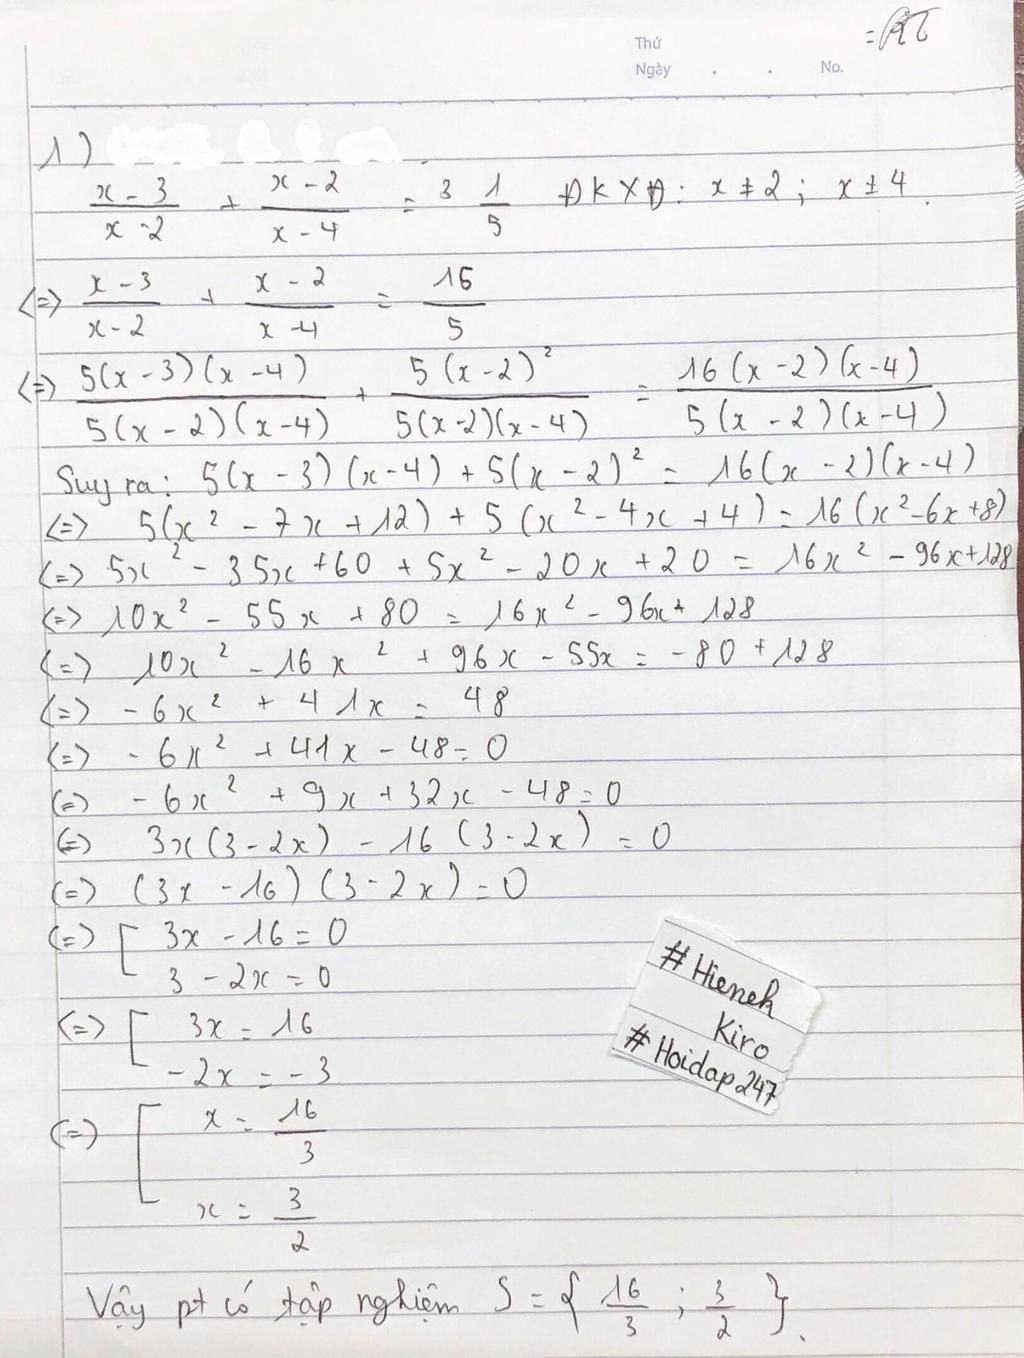 Thứ
Ngày . . No.
1)
x - 3 / x - 2 + x - 2 / x - 4 = 3 1/5 ĐKXĐ: x ≠ 2; x ≠ 4.
<=> x - 3 / x - 2 + x - 2 / x - 4 = 16/5
<=> 5(x - 3)(x - 4) / 5(x - 2)(x - 4) + 5(x - 2)² / 5(x - 2)(x - 4) = 16(x - 2)(x - 4) / 5(x - 2)(x - 4)
Suy ra: 5(x - 3)(x - 4) + 5(x - 2)² = 16(x - 2)(x - 4)
<=> 5(x² - 7x + 12) + 5(x² - 4x + 4) = 16(x² - 6x + 8)
<=> 5x² - 35x + 60 + 5x² - 20x + 20 = 16x² - 96x + 128
<=> 10x² - 55x + 80 = 16x² - 96x + 128
<=> 10x² - 16x² + 96x - 55x = -80 + 128
<=> -6x² + 41x = 48
<=> -6x² + 41x - 48 = 0
<=> -6x² + 9x + 32x - 48 = 0
<=> 3x(3 - 2x) - 16(3 - 2x) = 0
<=> (3x - 16)(3 - 2x) = 0
<=> [ 3x - 16 = 0
3 - 2x = 0
<=> [ 3x = 16
-2x = -3
<=> [ x = 16/3
x = 3/2
Vậy pt có tập nghiệm S = { 16/3 ; 3/2 }.
#Hieneh
Kiro
#Hoidap247